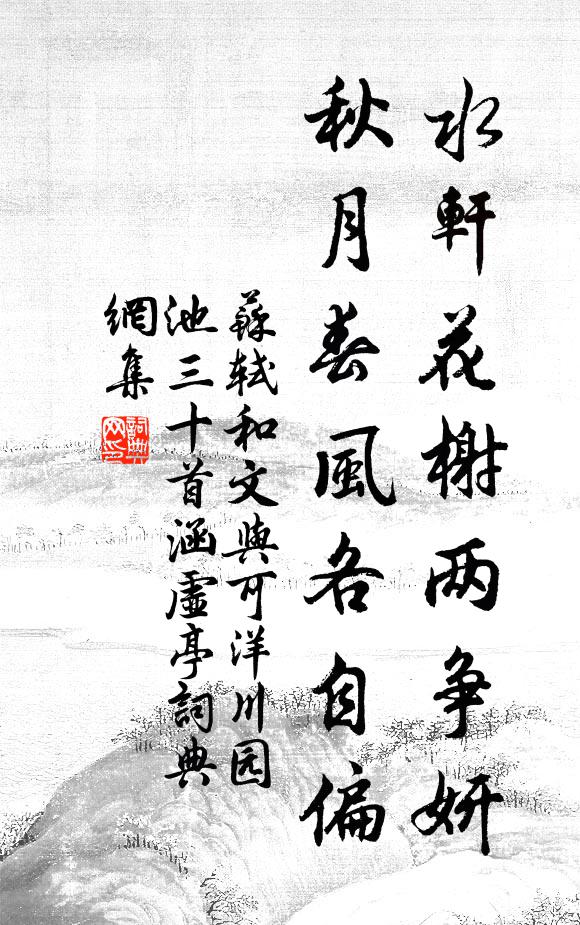 水軒花榭两争妍
秋月春風各自偏
蘇軾和文與可洋川园
池三十首涵虛亭詞典
網集
詞典
网印